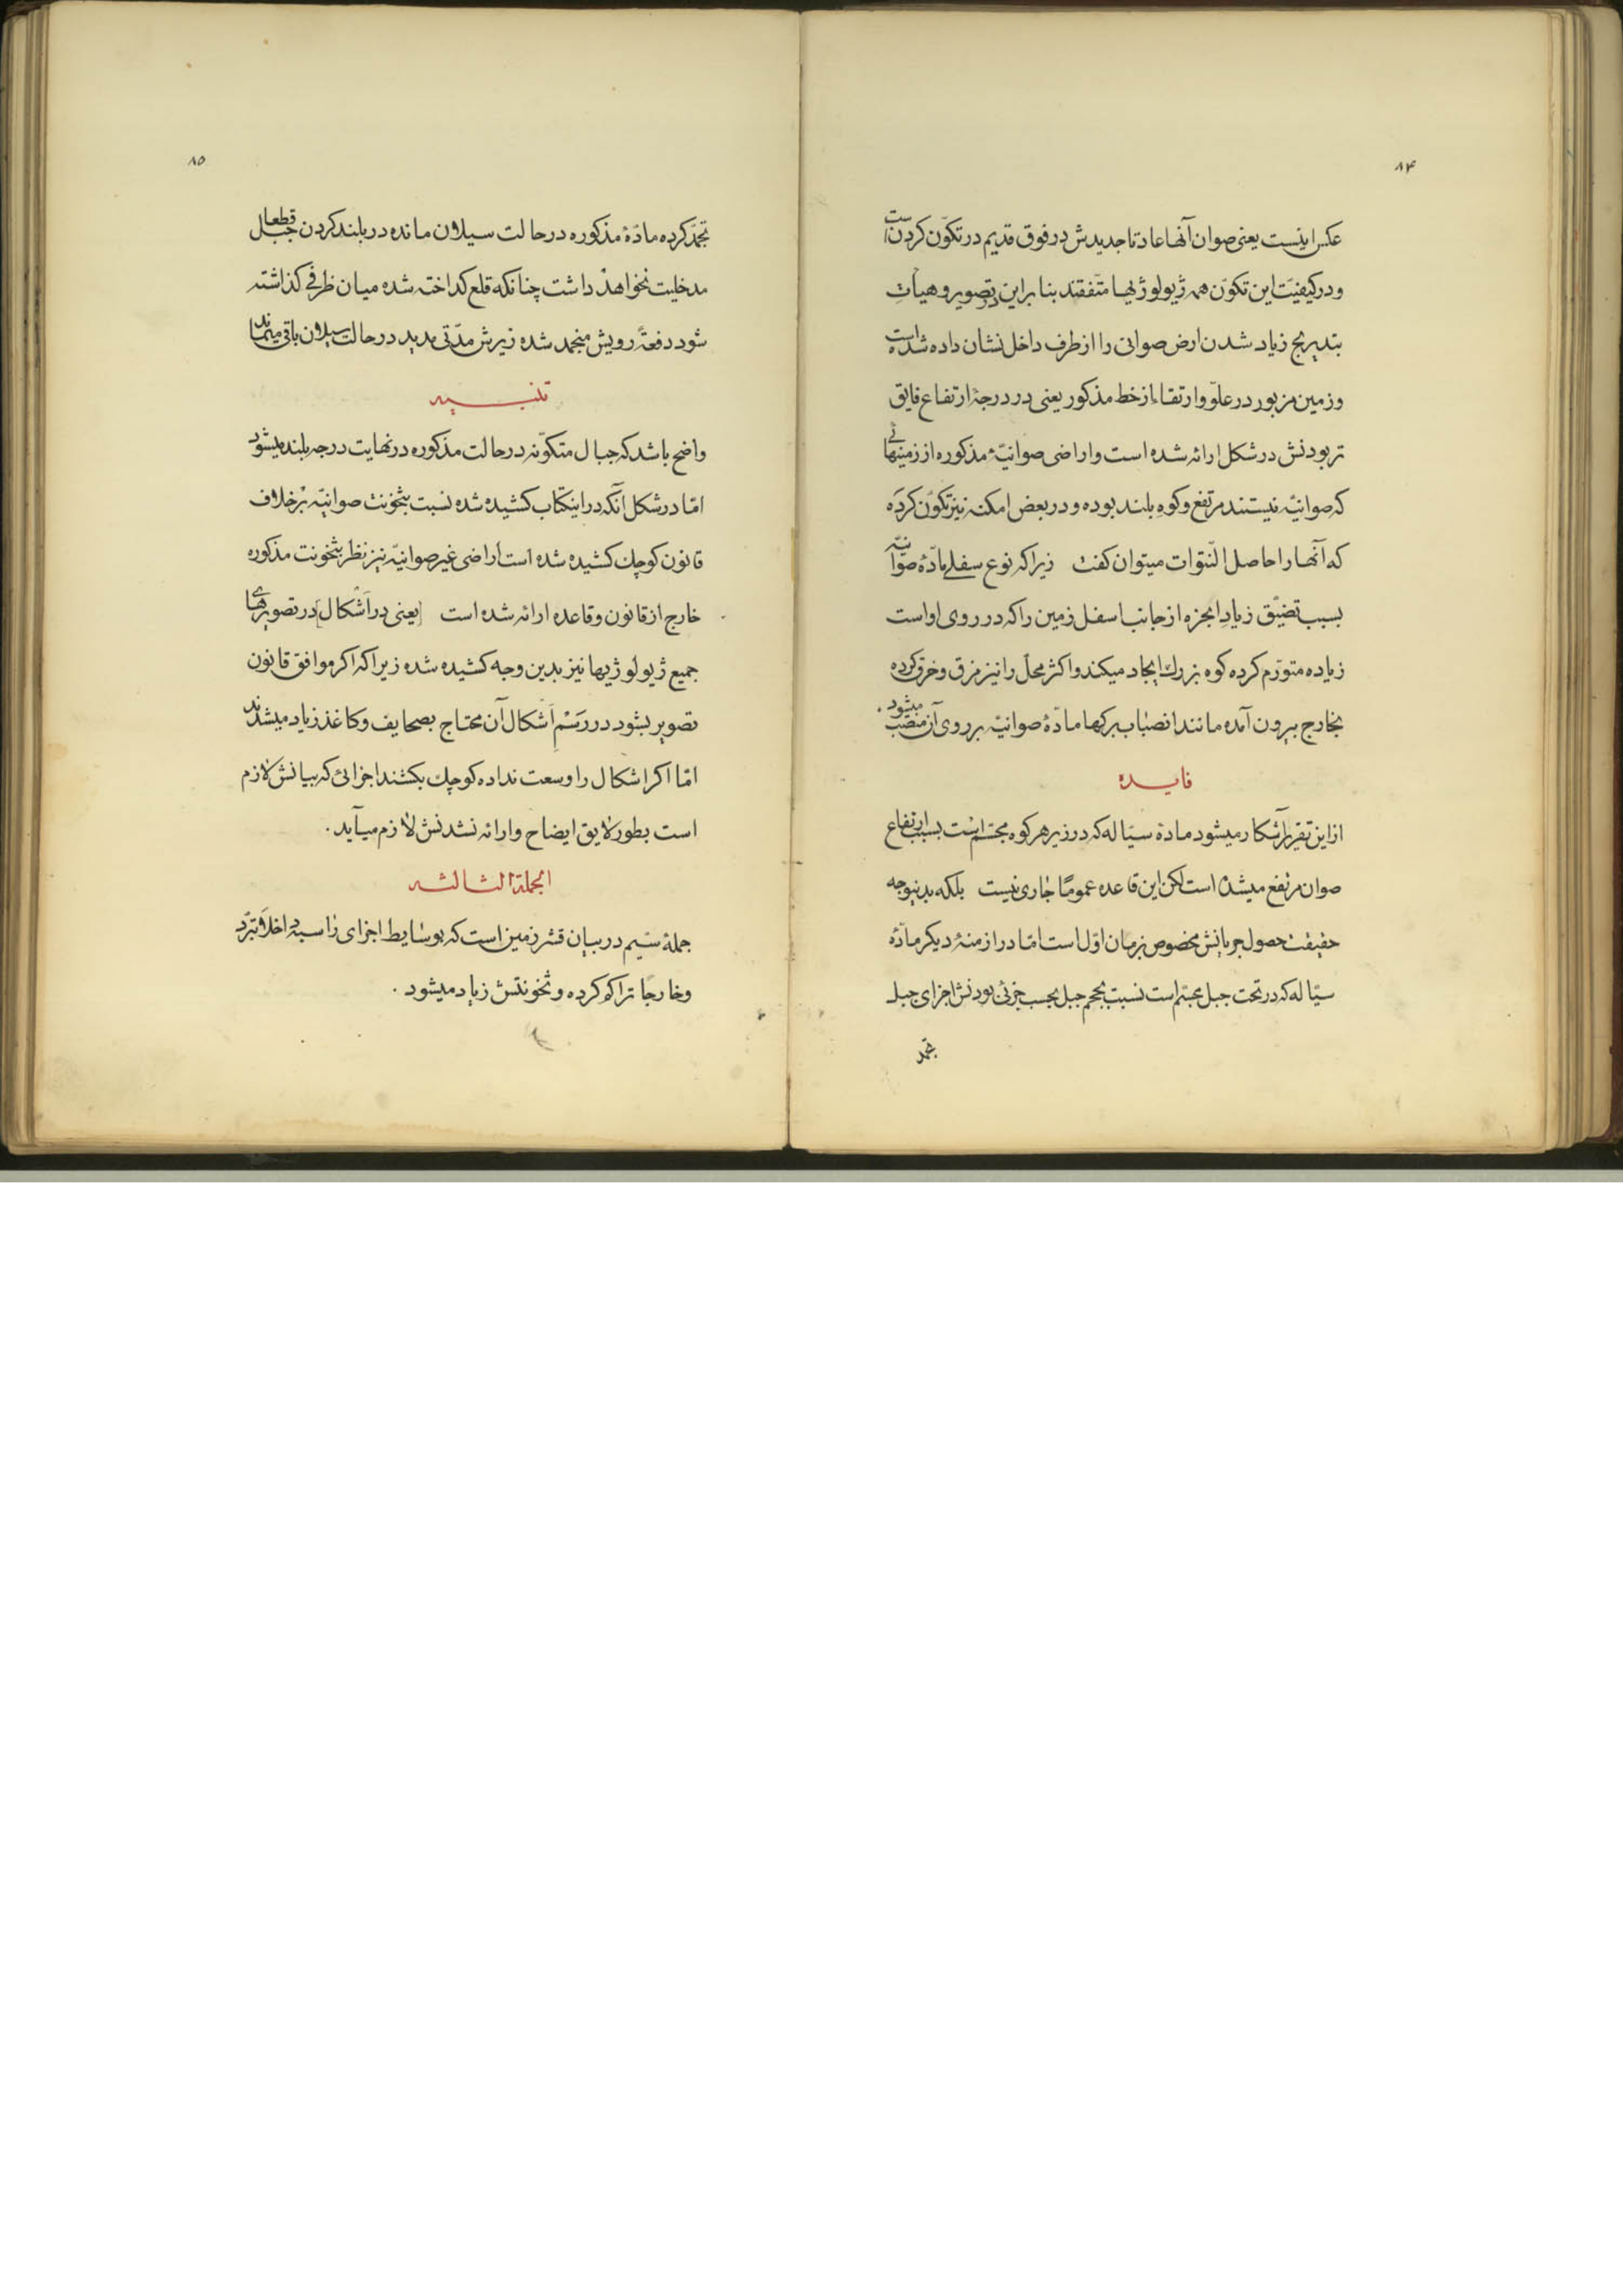 ۸۴
عکس اینست یعنی صوان آنها عادتا جدیدش در فوق قدیم در تکوّن کردن است
و در کیفیّت این تکوّن همه ژیولوژیها متّفقند بنا براین در تصویر و هیأتِ
بتدریج زیاد شدن ارض صوانی را از طرف داخل نشان داده شده است
و زمین مزبور در علوّ و ارتقاء از خط مذکور یعنی در درجهٔ ارتفاع فایق
تر بودنش در شکل ارائه شده است و اراضی صوانیّهٔ مذکوره از زمینهائی
که صوانیّه نیستند مرتفع و کوه بلند بوده و در بعض امکنه نیز تکوّن کرده
که آنها را حاصل النّتوات میتوان کفت زیرا که نوع سفلی مادّهٔ صوّانیّه
بسبب تضیّق زیادِ ابخره از جانب اسفل زمین را که در روی اواست
زیاده متورّم کرده کوه بزرك ایجاد میکند و اکثر محلّ را نیز مزق و خرق کرده
بخارج بیرون آمده مانند انصباب برکها مادّهٔ صوانیّه بر روی آن منصّب میشود .
فایده
از این تقریر آشکار میشود مادهٔ سیّاله که در زیر هر کوه مجتمع است بسبب ارتفاع
صوان مرتفع میشده است لکن این قاعده عموماً جاری نیست بلکه بدینوجه
حقیقت حصول جریانش مخصوص زمان اوّل است امّا در ازمنهٔ دیکر مادّه
سیّاله که در تحت جبل مجتمع است نسبت بحجم جبل بحسب جزئی بودنش اجزای جبل
تجمّد
۸۵
تجمّد کرده مادّهٔ مذکوره در حالت سیلان مانده در بلند کردن جبل قطعا
مدخلیت نخواهد داشت چنانکه قلع کداخته شده میان ظرفی کذاشته
شود دفعةً رویش منجمد شده زیرش مدّتی مدید در حالت سیلان باقی میماند
تنبیه
واضح باشد که جبال متکوّنه در حالت مذکوره در نهایت درجه بلند میشود
امّا در شکل آنکه در اینکتاب کشیده شده نسبت بثخونت صوانیّه برخلاف
قانون کوچك کشیده شده است اراضی غیر صوانیّه نیز نظر بثخونت مذکوره
خارج از قانون و قاعده ارائه شده است [یعنی در اشکال] در تصویرهای
جمیع ژیولوژیها نیز بدین وجه کشیده شده زیرا که اکر موافق قانون
تصویر بشود در رسم اشکال آن محتاج بصحایف و کاغذ زیاد میشدند
امّا اکر اشکال را وسعت نداده کوچك بکشند اجزائی که بیانش لازم
است بطور لایق ایضاح و ارائه نشدنش لازم میآید .
الجملة الثالثه
جملهٔ سیّم در بیان قشر زمین است که بوسایط اجزای راسبه داخلاً تبرّد
و خارجاً تراکم کرده و ثخونتش زیاد میشود .